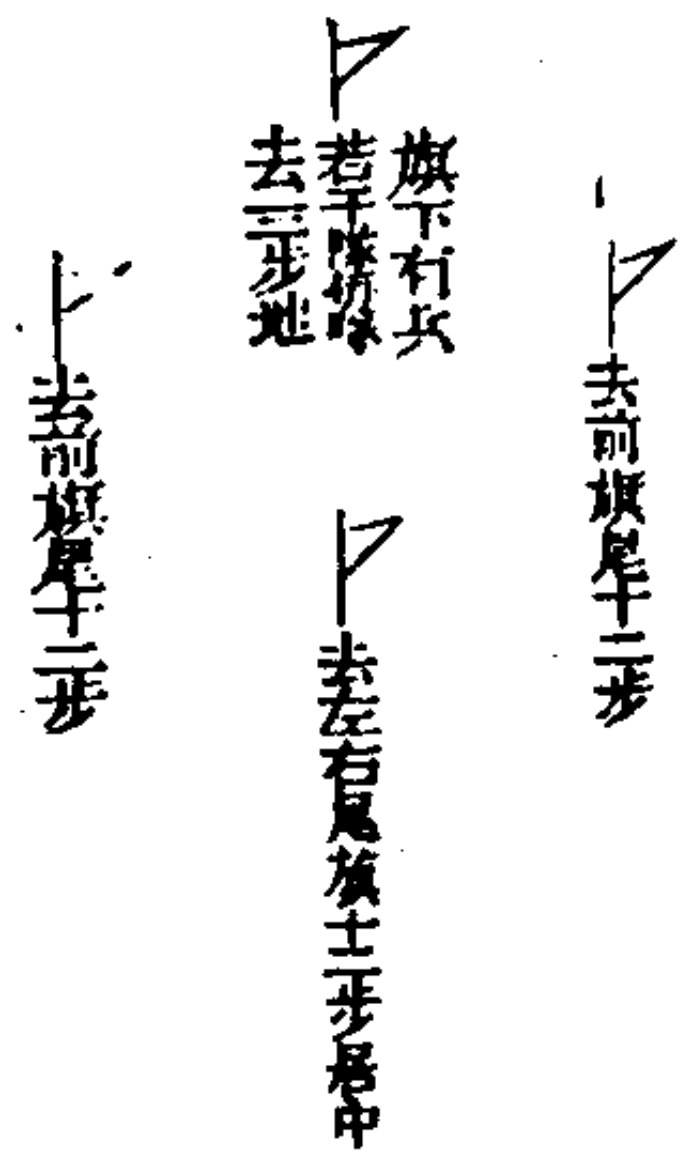 去前旗尾十二步
旗下有兵
若干隊隊
去三步地
去左右尾旗十二步居中
去前旗尾十二步